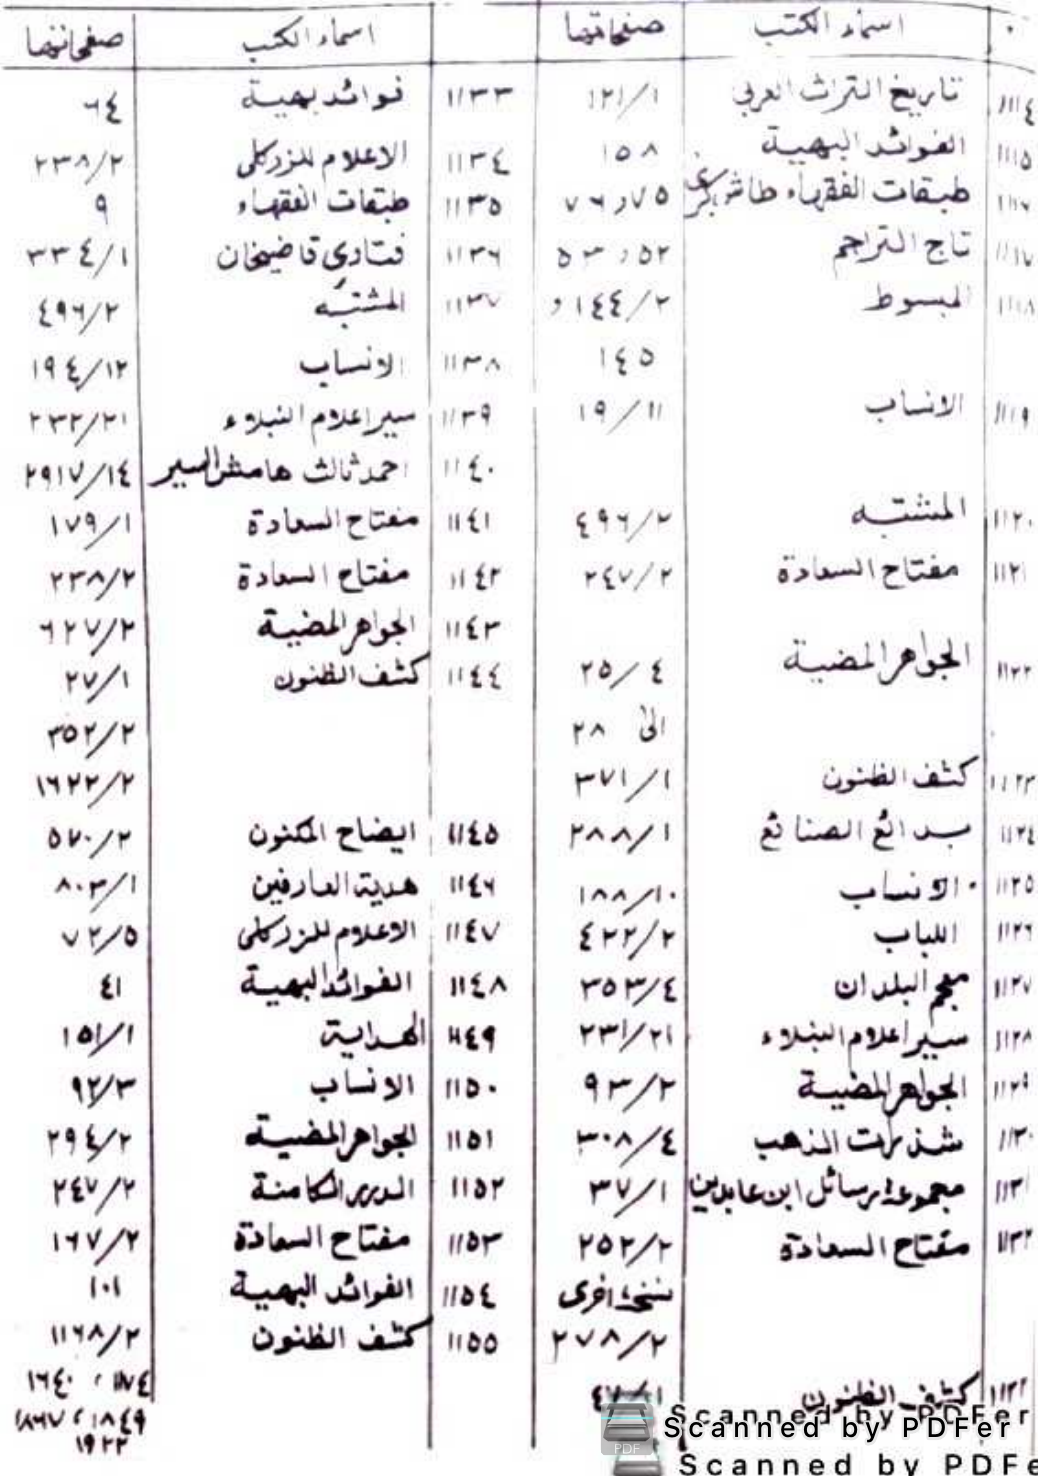 اسماء الكتب صفحاتها
١١١٤ تاريخ التراث العربي ١٢١/١
١١١٥ الفوائد البهية ١٥٨
١١١٦ طبقات الفقهاء طاش كبرى ٧٥ و ٧٦
١١١٧ تاج التراجم ٥٢ و ٥٣
١١١٨ المبسوط ١٤٤/٢ و
١٤٥
١١١٩ الانساب ١٩/١١
١١٢٠ المشتبه ٤٩٦/٢
١١٢١ مفتاح السعادة ٢٤٧/٢
١١٢٢ الجواهر المضية ٢٥/٤
الى ٢٨
١١٢٣ كشف الظنون ٣٧١/١
١١٢٤ بدائع الصنائع ٢٨٨/١
١١٢٥ الانساب ١٨٨/١٠
١١٢٦ اللباب ٤٢٢/٢
١١٢٧ معجم البلدان ٣٥٣/٤
١١٢٨ سير اعلام النبلاء ٢٣١/٢١
١١٢٩ الجواهر المضية ٩٣/٢
١١٣٠ شذرات الذهب ٣٠٨/٤
١١٣١ مجموعة رسائل ابن عابدين ٣٧/١
١١٣٢ مفتاح السعادة ٢٥٢/٢
نسخة اخرى
٢٧٨/٢
كشف الظنون
اسماء الكتب صفحاتها
١١٣٣ فوائد بهية ٦٤
١١٣٤ الاعلام للزركلى ٢٣٨/٢
١١٣٥ طبقات الفقهاء ٩
١١٣٦ فتاوى قاضيخان ٣٣٤/١
١١٣٧ المشتبه ٤٩٦/٢
١١٣٨ الانساب ١٩٤/١٢
١١٣٩ سير اعلام النبلاء ٢٣٢/٢١
١١٤٠ احمد ثالث هامش السير ٢٩١٧/١٤
١١٤١ مفتاح السعادة ١٧٩/١
١١٤٢ مفتاح السعادة ٢٣٨/٢
١١٤٣ الجواهر المضية ٦٢٧/٢
١١٤٤ كشف الظنون ٢٧/١
٣٥٢/٢
١٦٢٢/٢
١١٤٥ ايضاح المكنون ٥٧٠/٢
١١٤٦ هدية العارفين ٨٠٣/١
١١٤٧ الاعلام للزركلى ٧٢/٥
١١٤٨ الفوائد البهية ٤١
١١٤٩ الهداية ١٥١/١
١١٥٠ الانساب ٩٢/٣
١١٥١ الجواهر المضية ٢٩٤/٢
١١٥٢ الدرر الكامنة ٢٤٧/٢
١١٥٣ مفتاح السعادة ١٦٧/٢
١١٥٤ الفوائد البهية ١٠١
١١٥٥ كشف الظنون ١١٦٨/٢
١١٧٤ ، ١٦٤٠
١٨٤٩ ، ١٨٦٧
١٩٢٢
Scanned by PDFer
Scanned by PDFer
PDF
Scanned by PDFe